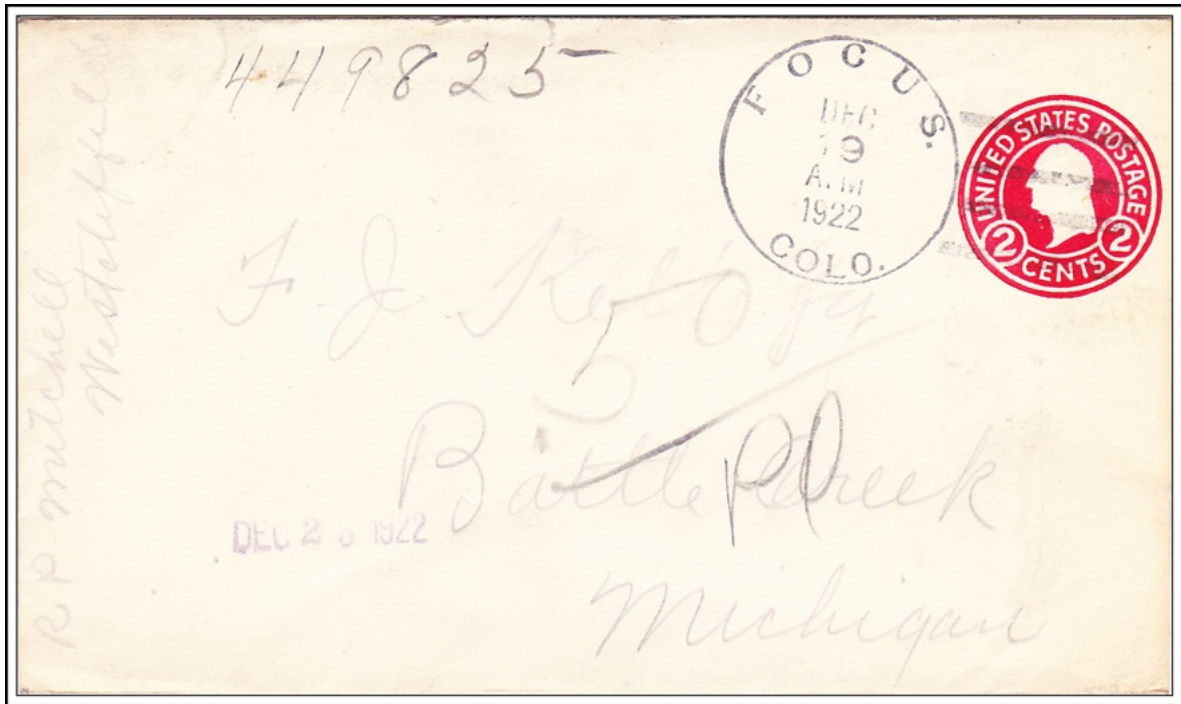 449825
FOCUS.
DEC
19
A.M
1922
COLO.
UNITED STATES POSTAGE
2 CENTS 2
R P Mitchell
Westcliffe
F. J. Kellogg
5
Battle Creek
Pd
DEC 2 1922
Michigan